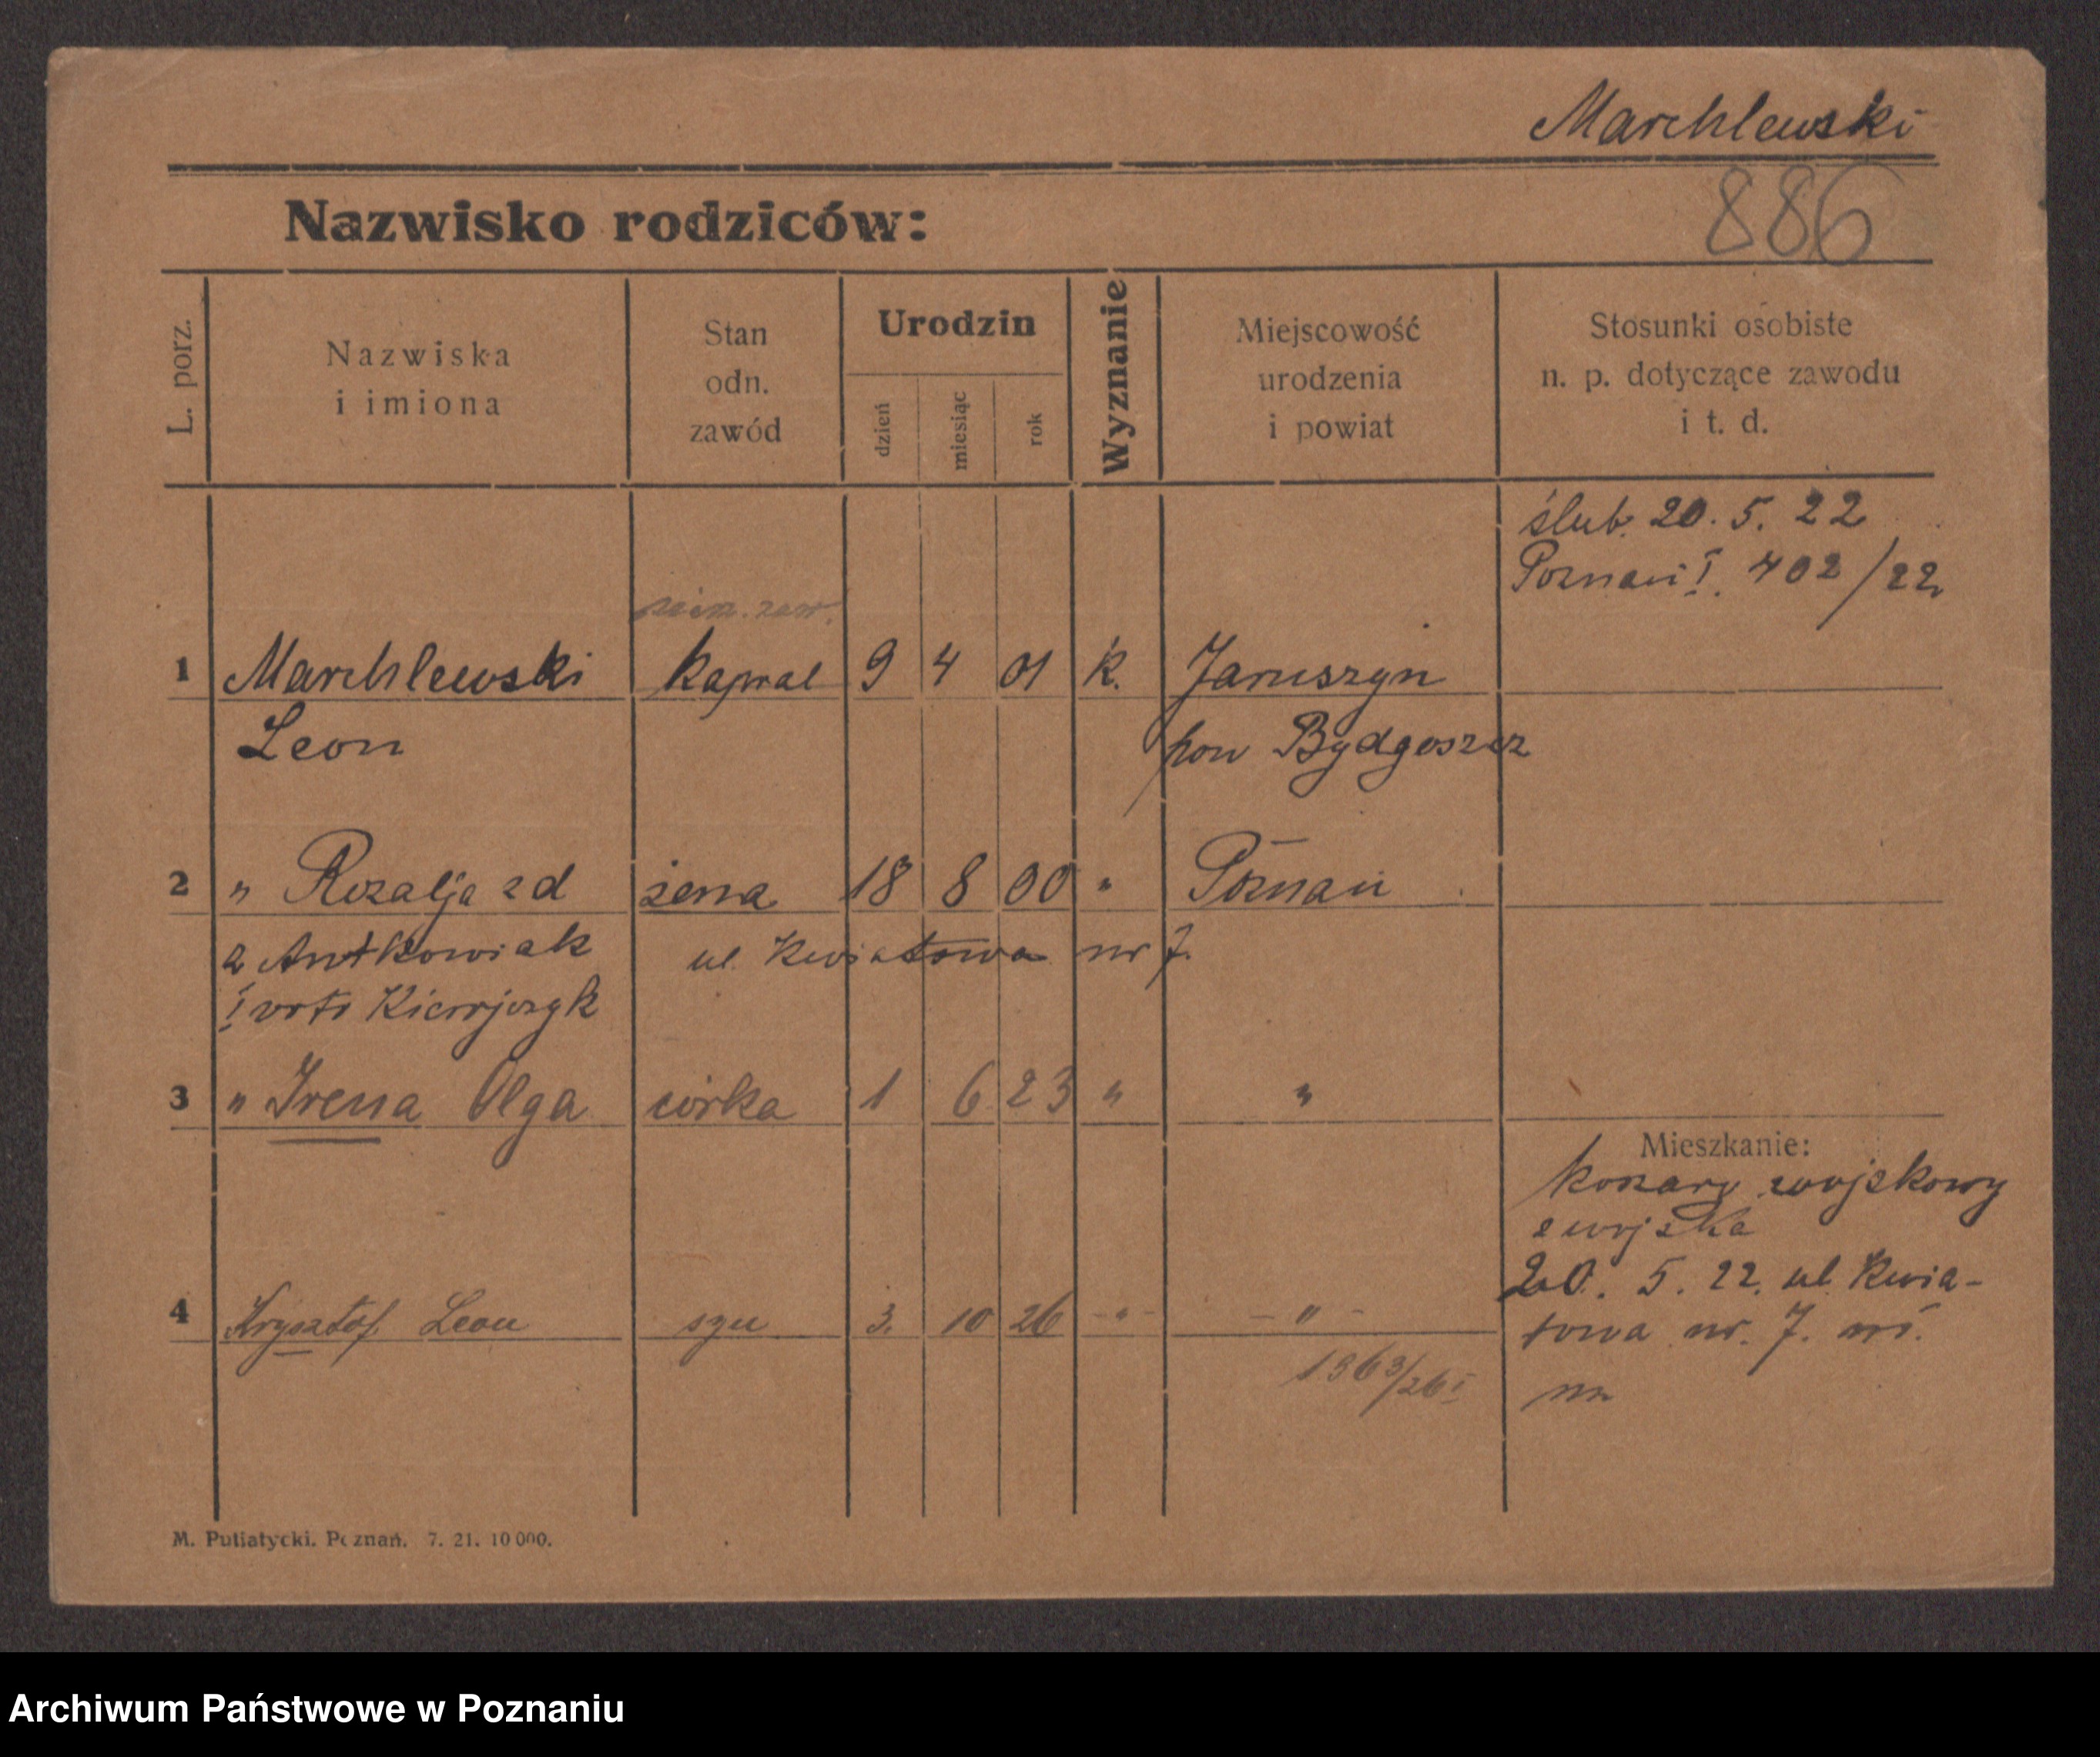 Marchlewski
886
Nazwisko rodziców:
L. porz.
Nazwiska
i imiona
Stan
odn.
zawód
Urodzin
dzień
miesiąc
rok
Wyznanie
Miejscowość
urodzenia
i powiat
Stosunki osobiste
n. p. dotyczące zawodu
i t. d.
ślub. 20. 5. 22
Poznań I. 402/22
zaw.
1 Marchlewski kapral 9 4 01 k. Jaruszyn
Leon pow Bydgoszcz
2 " Rozalja z d żona 18 8 00 " Poznań
Antkowiak ul. Kwiatowa nr 7.
I voto
3 " Irena Olga córka 1 6 23 " "
Mieszkanie:
koszary wojskowy
z wojska
4 Krzysztof Leon syn 3. 10 26 -"- -"-
20. 5. 22. ul. Kwia-
towa nr. 7.
1363/26 I
M. Putiatycki. Poznań. 7. 21. 10 000.
Archiwum Państwowe w Poznaniu